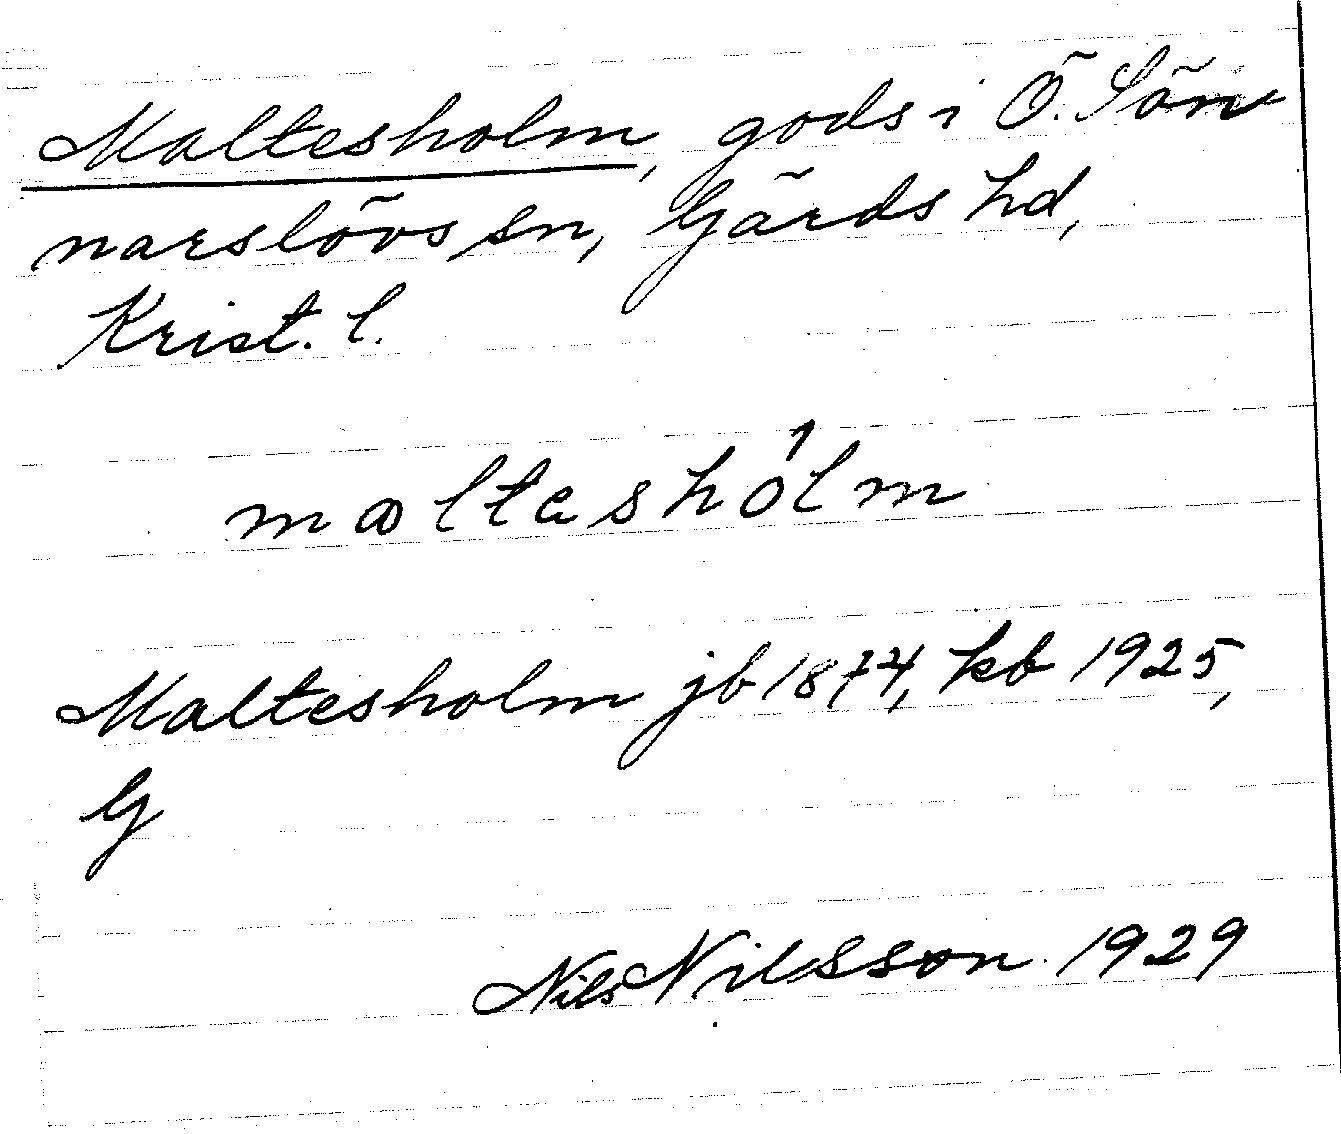 Maltesholm, gods i Ö. Sön
narslövs sn, Gärds hd,
Krist. l.
malteshólm
Maltesholm jb 1874, kb 1925,
G
Nils Nilsson 1929